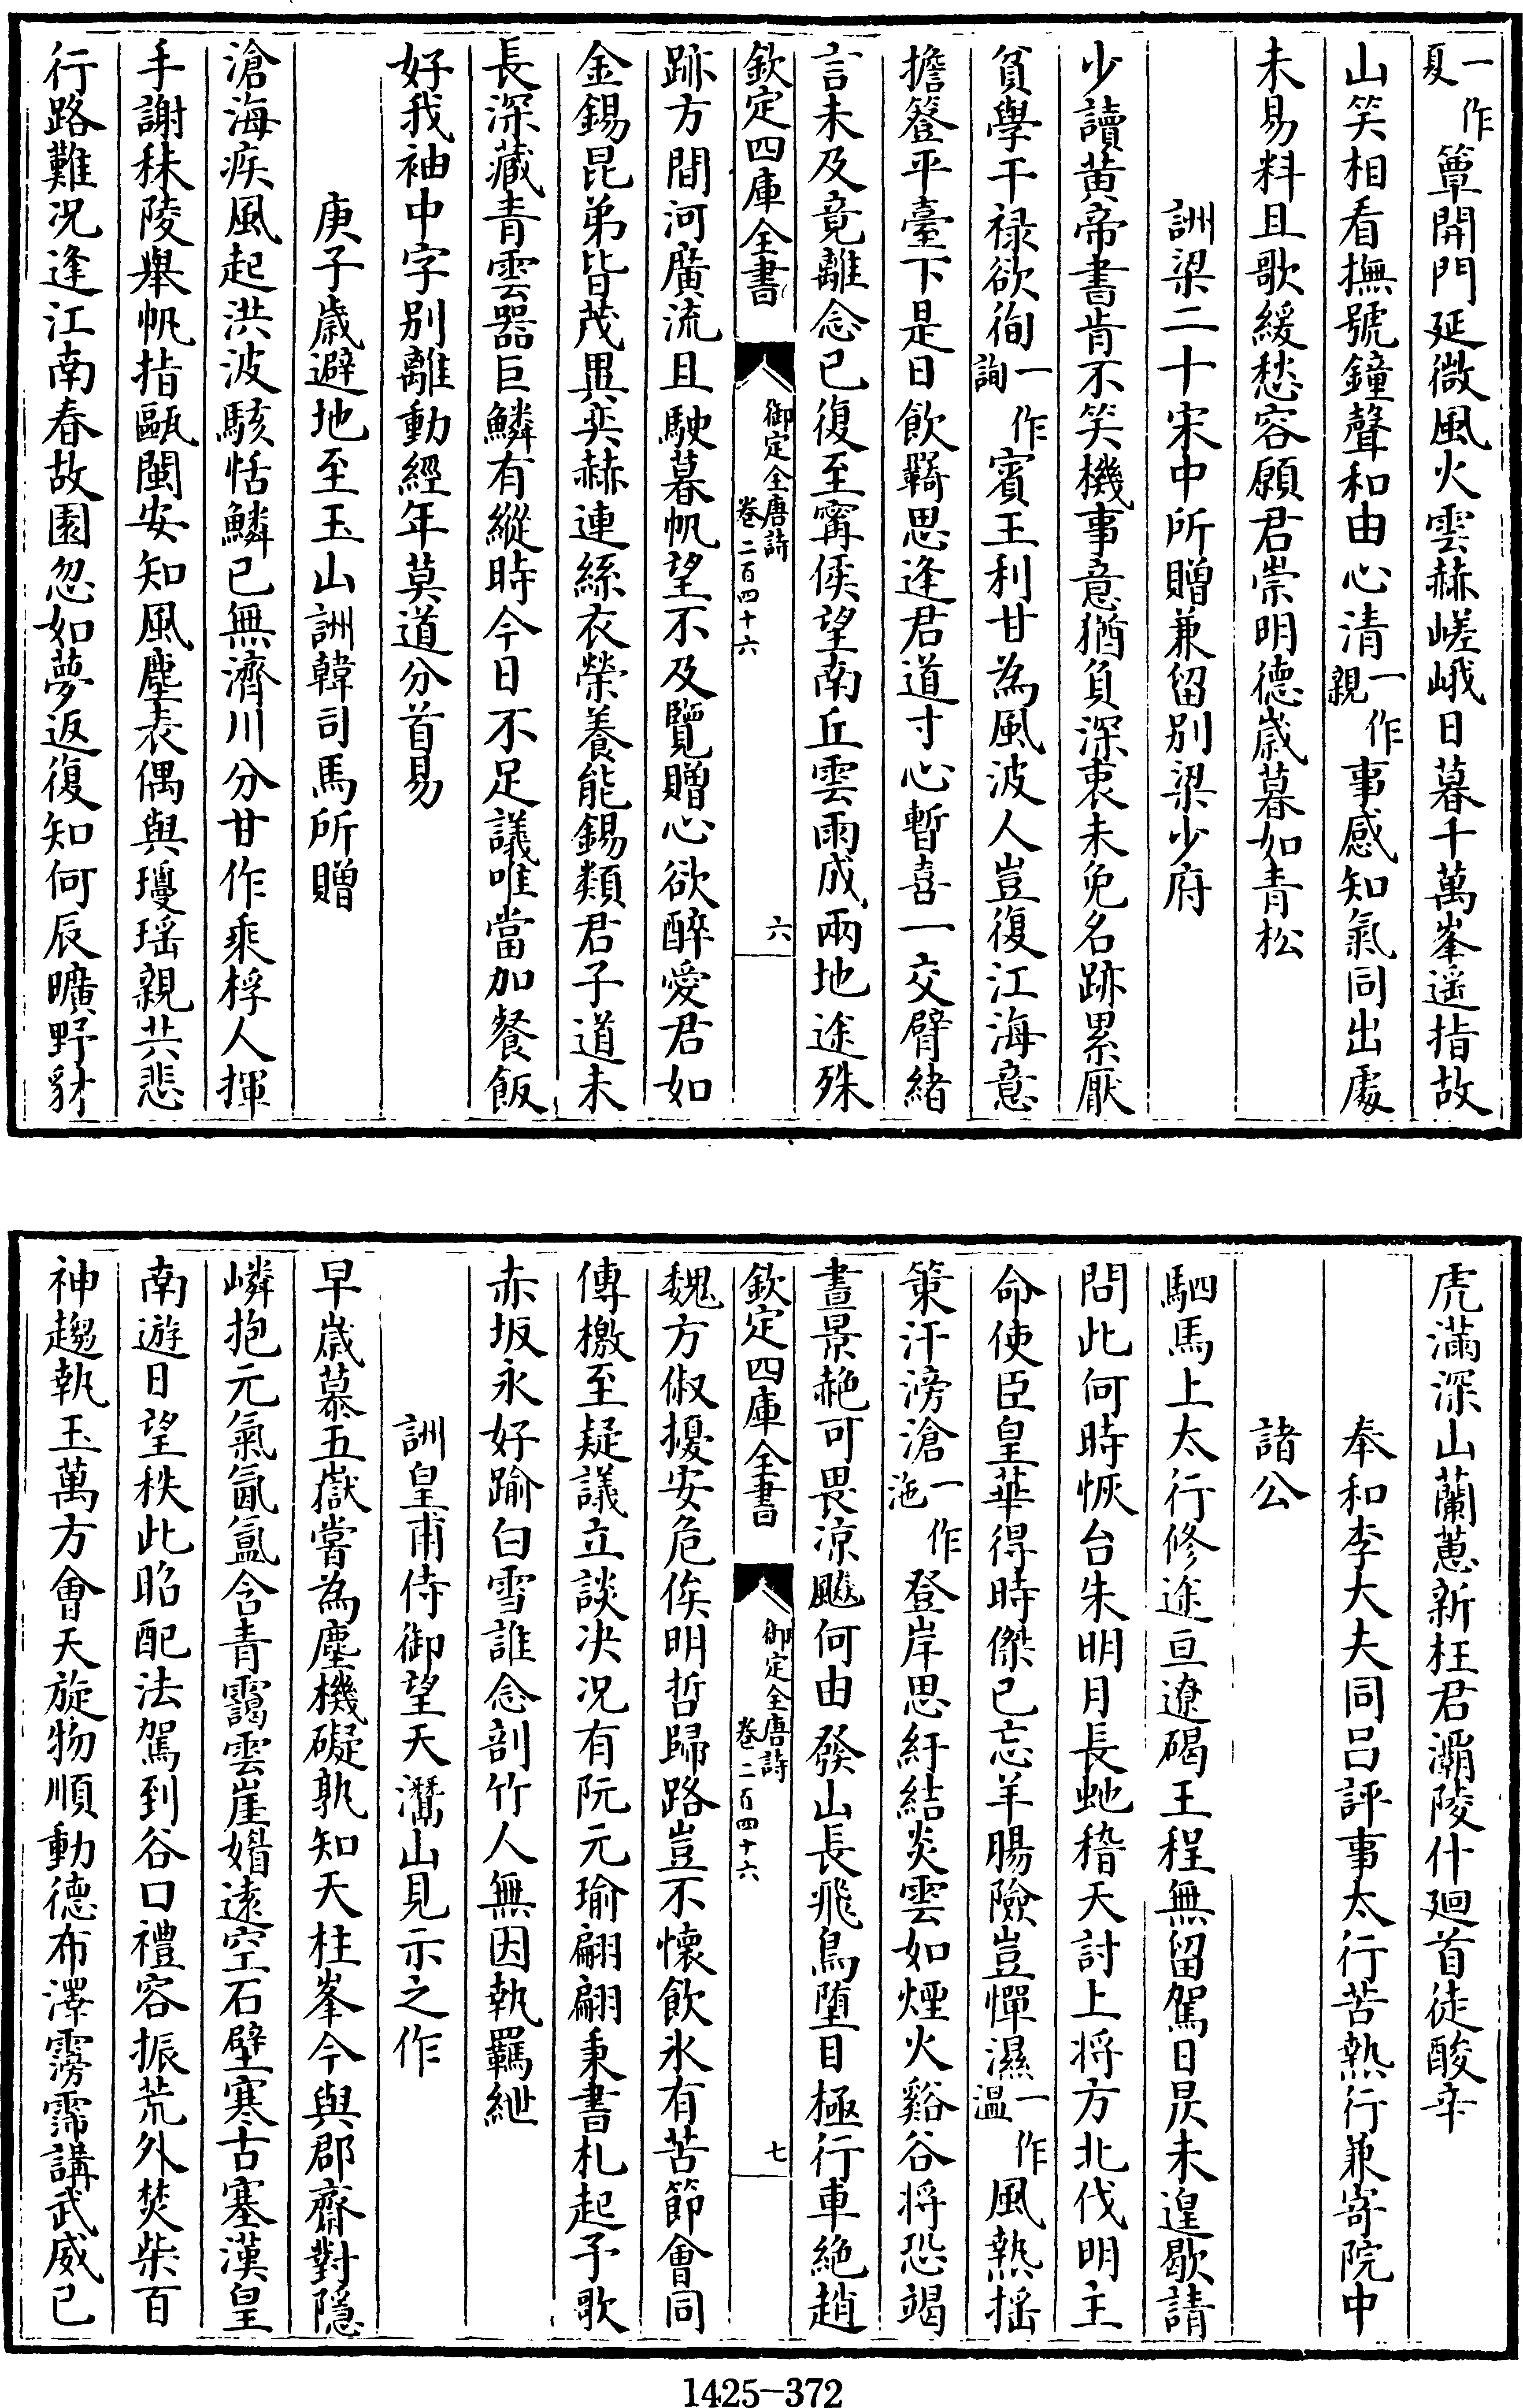 一作夏簟開門延微風火雲赫嵯峨日暮千萬峯遥指故
山笑相看撫號鐘聲和由心清一作親事感知氣同出處
未易料且歌緩愁容願君崇明德歲暮如青松
詶梁二十宋中所贈兼留別梁少府
少讀黄帝書肯不笑機事意猶負深衷未免名跡累厭
貧學干禄欲徇一作詢賔王利甘為風波人豈復江海意
擔簦平臺下是日飲羇思逢君道寸心暫喜一交臂緒
言未及竟離念已復至甯侯望南丘雲雨成兩地途殊
欽定四庫全書 御定全唐詩 卷二百四十六 六
跡方間河廣流且駛暮帆望不及覽贈心欲醉愛君如
金錫昆弟皆茂異奕赫連絲衣榮養能錫類君子道未
長深藏青雲器巨鱗有縱時今日不足議唯當加餐飯
好我袖中字別離動經年莫道分首易
庚子歲避地至玉山詶韓司馬所贈
滄海疾風起洪波駭恬鱗已無濟川分甘作乘桴人揮
手謝秣陵舉帆指甌閩安知風塵表偶與瓊瑶親共悲
行路難況逢江南春故園忽如夢返復知何辰曠野豺
虎滿深山蘭蕙新枉君灞陵什廻首徒酸辛
奉和李大夫同吕評事太行苦熱行兼寄院中
諸公
駟馬上太行修途亘遼碣王程無留駕日昃未遑歇請
問此何時恢台朱明月長虵稽天討上将方北伐明主
命使臣皇華得時傑已忘羊腸險豈憚濕一作温風熱摇
策汗滂滄一作沲登岸思紆結炎雲如煙火谿谷将恐竭
晝景赩可畏涼飈何由發山長飛鳥墮目極行車絶趙
欽定四庫全書 御定全唐詩 卷二百四十六 七
魏方俶擾安危俟明哲歸路豈不懷飲氷有苦節會同
傳檄至疑議立談决况有阮元瑜翩翩秉書札起予歌
赤坂永好踰白雪誰念剖竹人無因執羈紲
詶皇甫侍御望天灊山見示之作
早歲慕五嶽嘗為塵機礙孰知天柱峯今與郡齋對隱
嶙抱元氣氤氲含青靄雲崖媚遠空石壁寒古塞漢皇
南遊日望秩此昭配法駕到谷口禮容振荒外焚柴百
神趨執玉萬方會天旋物順動德布澤霶霈講武威已
1425—372